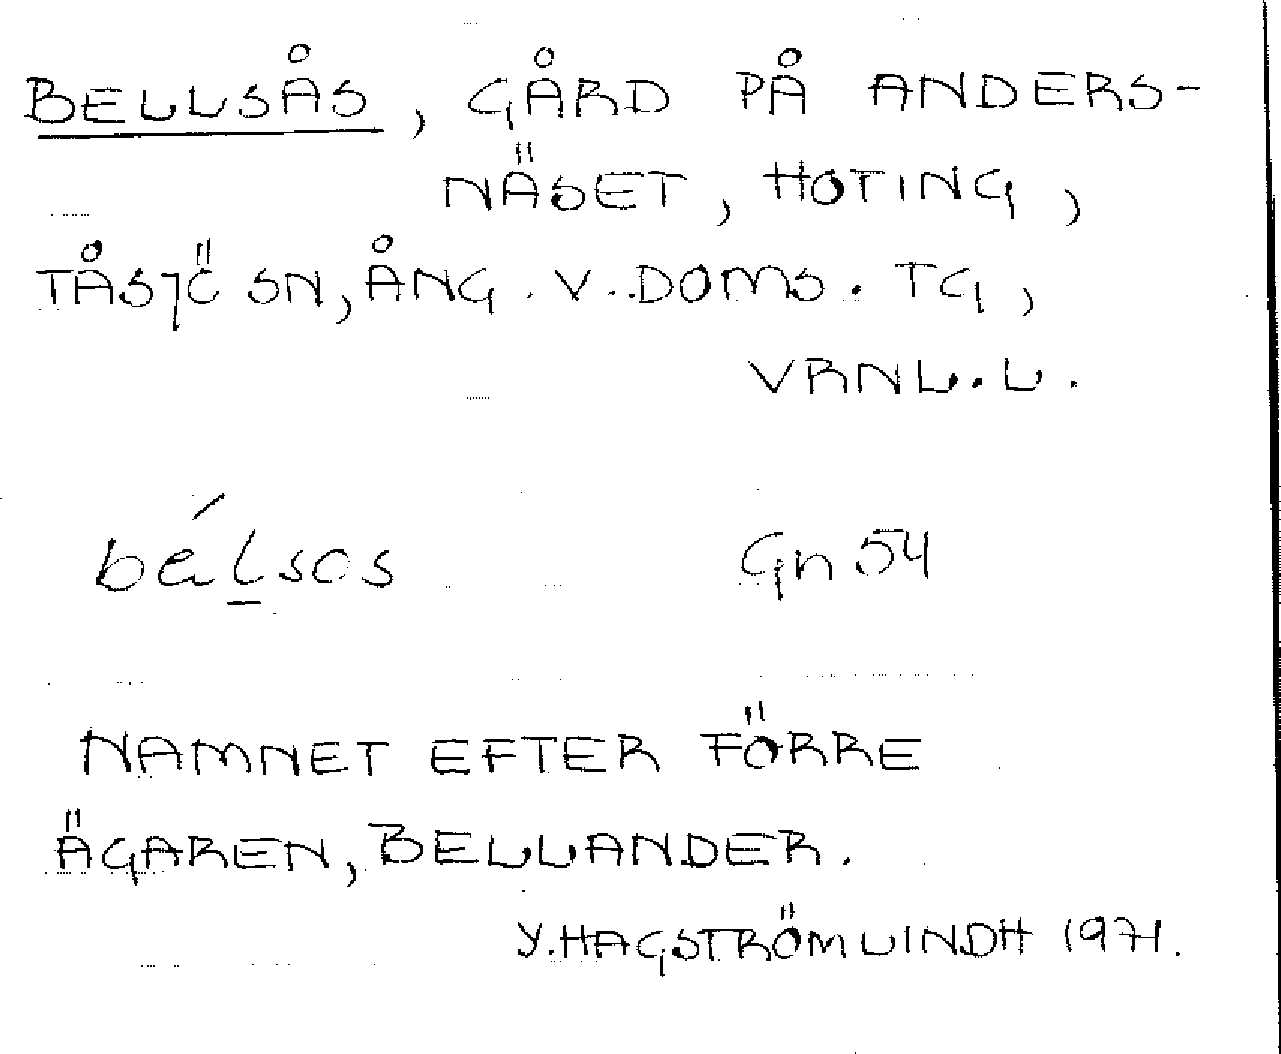 BELLSÅS, GÅRD PÅ ANDERS-
NÄSET, HOTING,
TÅSJÖ SN, ÅNG. V. DOMS. TG,
VRNL. L.
bélsos Gn 54
NAMNET EFTER FÖRRE
ÄGAREN, BELLANDER.
Y. HAGSTRÖM LINDH 1971.